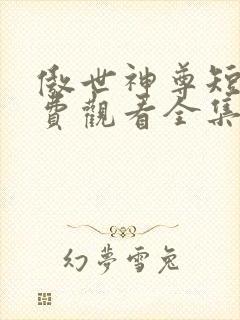 傲世神尊短
費觀看全集
幻夢雪兔